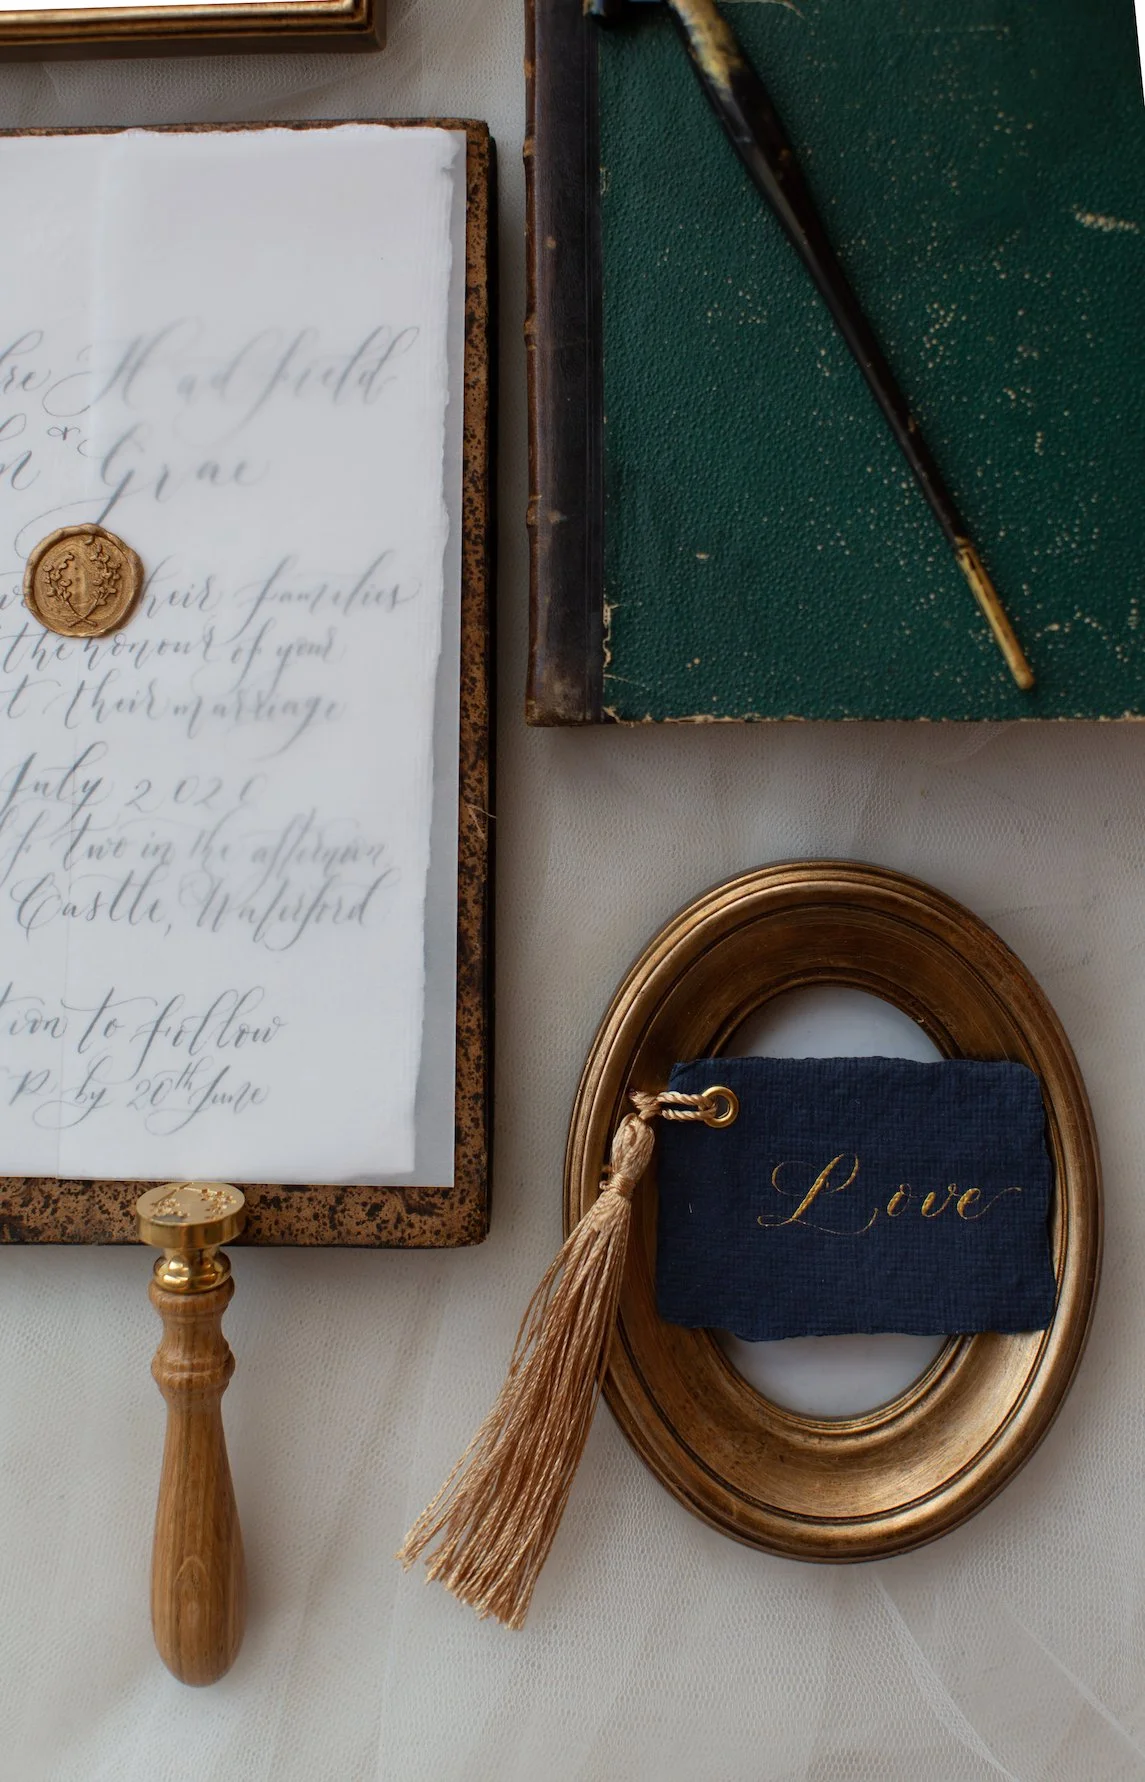 Hadfield
& Grae
their families
the honour of your
t their marriage
July 202
two in the afternoon
Castle, Waterford
ion to follow
P by 20th June
Love